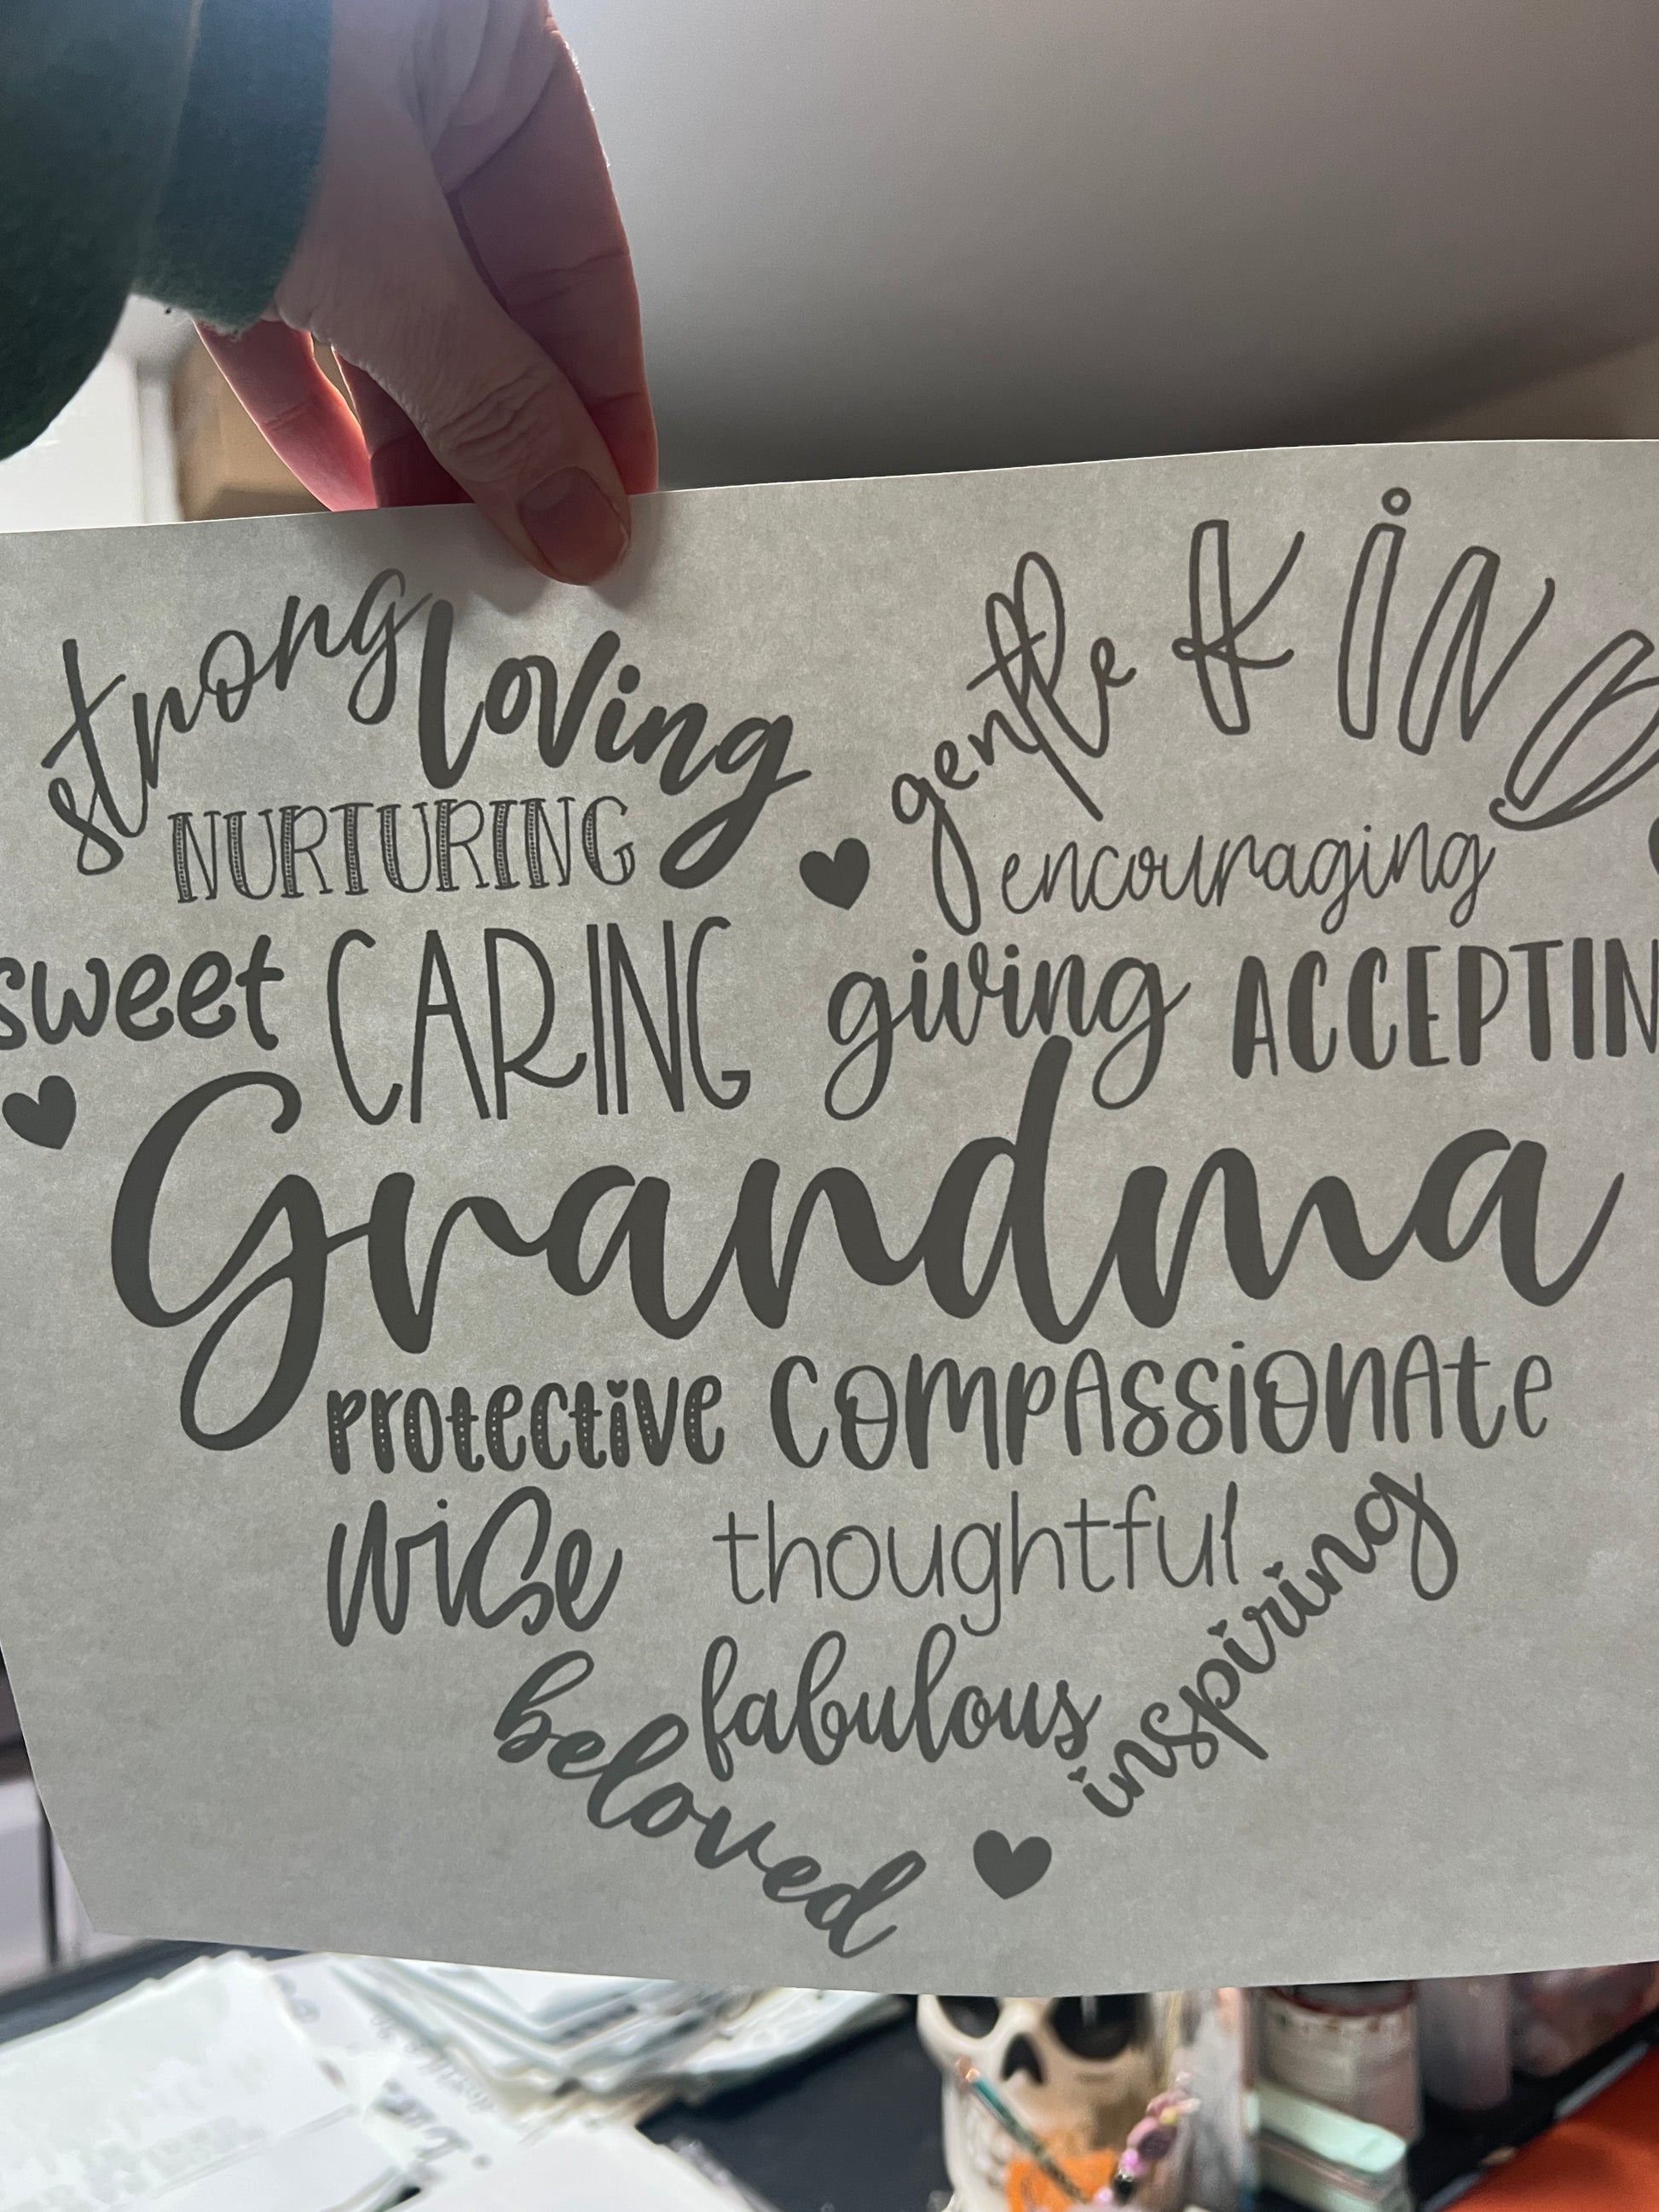 strong loving gentle KIND
NURTURING encouraging
sweet CARING giving ACCEPTIN
Grandma
PROTECTIVE COMPASSIONATE
wise thoughtful
beloved fabulous inspiring